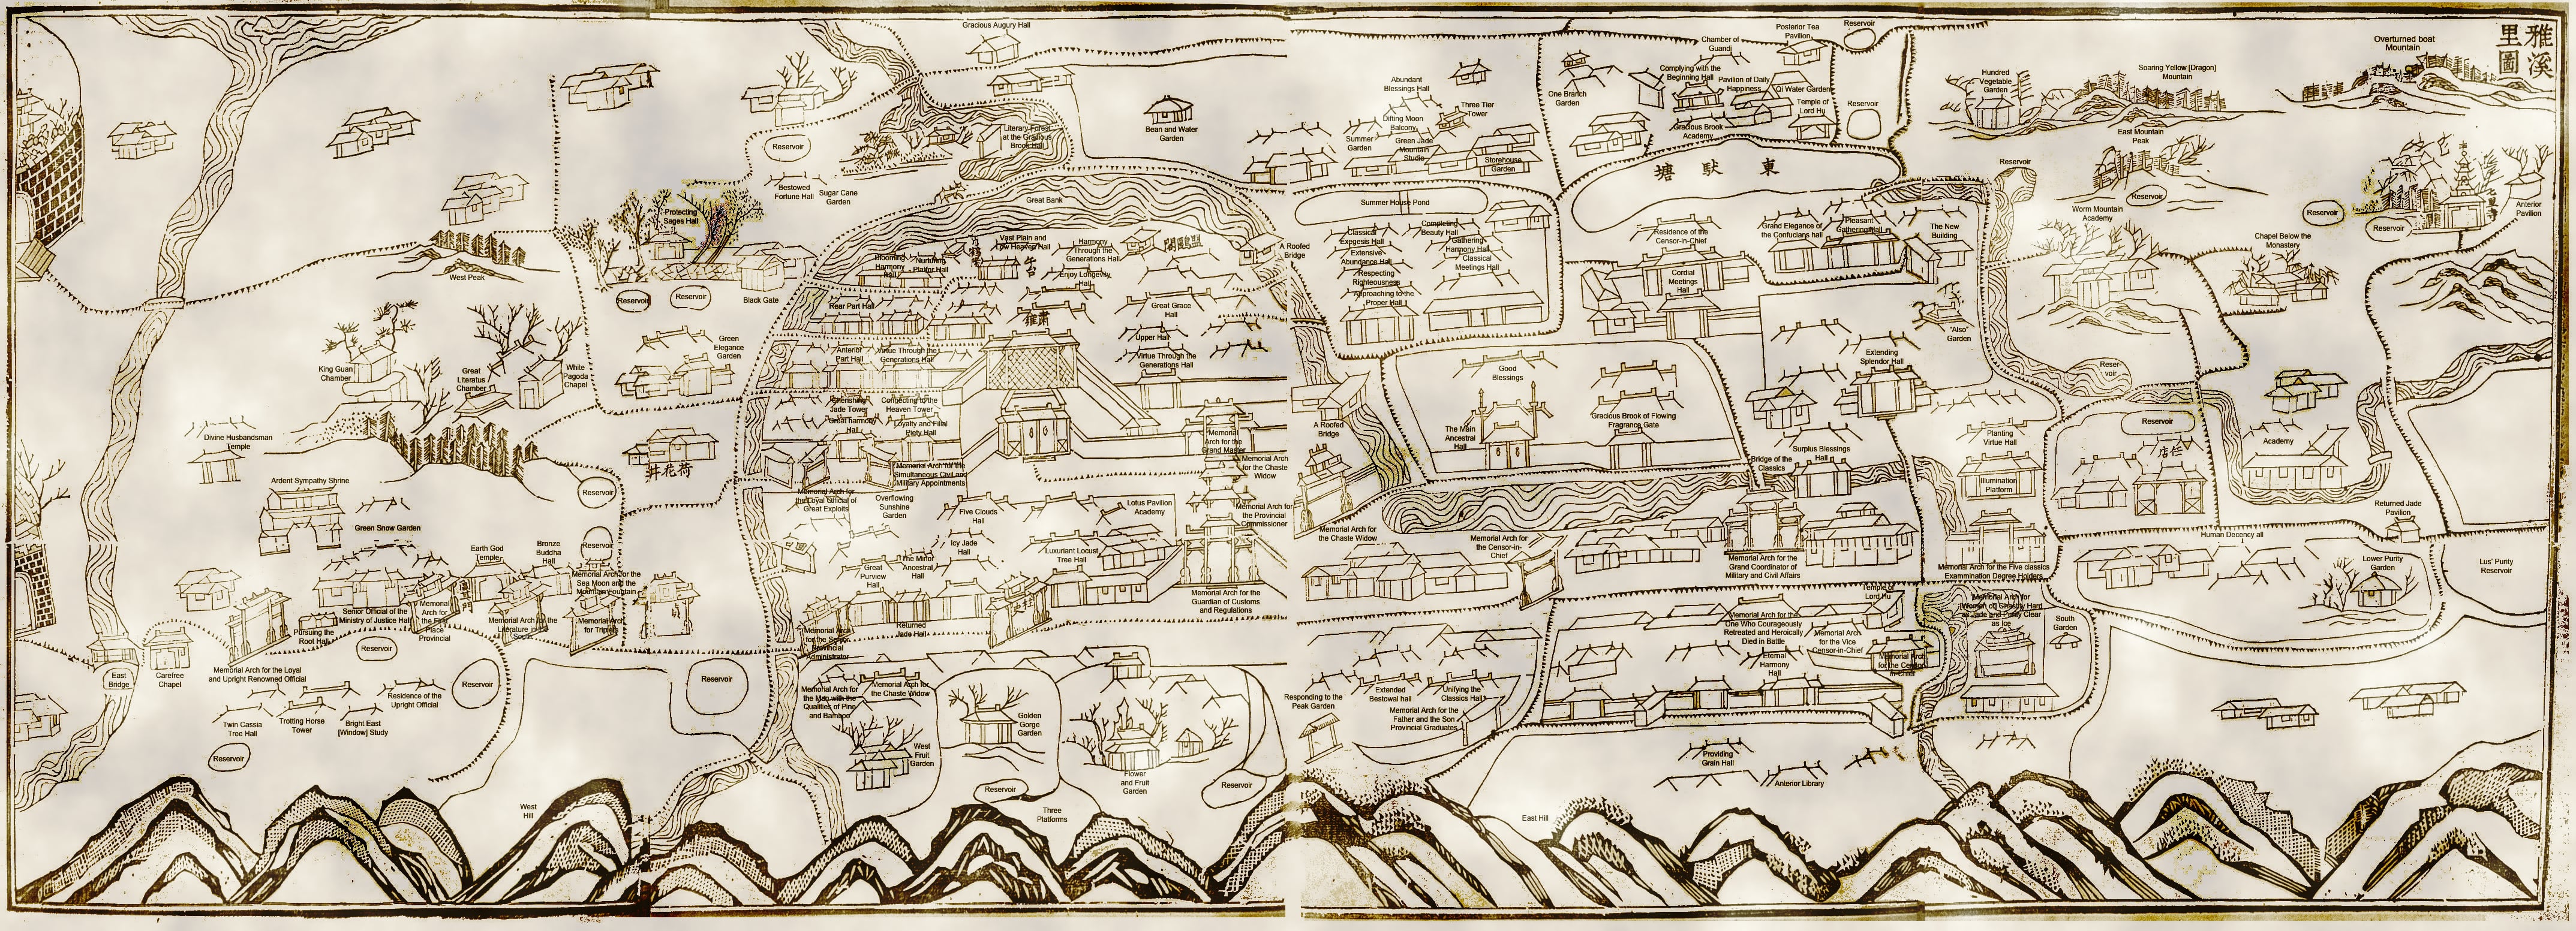 雅溪
里圖
Gracious Augury Hall
Bean and Water
Garden
Literary Forest
at the Gracious
Brook Hall
Reservoir
Bestowed
Fortune Hall
Sugar Cane
Garden
Great Bank
Protecting
Sages Hall
West Peak
Reservoir
Reservoir
Black Gate
Green
Elegance
Garden
King Guan
Chamber
Great
Literatus
Chamber
White
Pagoda
Chapel
Divine Husbandsman
Temple
Ardent Sympathy Shrine
Green Snow Garden
Reservoir
Reservoir
井花荷
Earth God
Temple
Bronze
Buddha
Hall
Memorial Arch for the
Sea Moon and the
Mountain Fountain
Senior Official of the
Ministry of Justice Hall
Memorial
Arch for
the First
Place
Provincial
Memorial Arch for the
Literature in the
South
Memorial Arch
for Triplet
Pursuing the
Root Hall
Reservoir
East
Bridge
Carefree
Chapel
Memorial Arch for the Loyal
and Upright Renowned Official
Residence of the
Upright Official
Reservoir
Twin Cassia
Tree Hall
Trotting Horse
Tower
Bright East
[Window] Study
Reservoir
West
Hill
Blooming
Harmony
Hall
Nurturing
Platfor Hall
Vast Plain and
Low Heaven Hall
Harmony
Through the
Generations Hall
Enjoy Longevity
Hall
Rear Part Hall
Great Grace
Hall
Upper Hall
Anterior
Part Hall
Virtue Through the
Generations Hall
Virtue Through the
Generations Hall
Cherishing
Jade Tower
Connecting to the
Heaven Tower
Great harmony
Hall
Loyalty and Filial
Piety Hall
Memorial
Arch for the
Grand Master
Memorial Arch
for the Chaste
Widow
Memorial Arch for the
Simultaneous Civil and
Military Appointments
Memorial Arch for
the Loyal Official of
Great Exploits
Overflowing
Sunshine
Garden
Five Clouds
Hall
Lotus Pavilion
Academy
Memorial Arch for
the Provincial
Commissioner
Icy Jade
Hall
Great
Purview
Hall
The Minor
Ancestral
Hall
Luxuriant Locust
Tree Hall
Memorial Arch for the
Guardian of Customs
and Regulations
Returned
Jade Hall
Memorial Arch
for the Senior
Provincial
Administrator
Reservoir
Memorial Arch for
the Man with the
Qualities of Pine
and Bamboo
Memorial Arch for
the Chaste Widow
West
Fruit
Garden
Golden
Gorge
Garden
Flower
and Fruit
Garden
Reservoir
Reservoir
Three
Platforms
Abundant
Blessings Hall
Three Tier
Tower
Difting Moon
Balcony
Summer
Garden
Green Jade
Mountain
Studio
Storehouse
Garden
One Branch
Garden
Chamber of
Guandi
Posterior Tea
Pavilion
Reservoir
Complying with the
Beginning Hall
Pavilion of Daily
Happiness
Qi Water Garden
Temple of
Lord Hu
Reservoir
Gracious Brook
Academy
塘獃東
Summer House Pond
A Roofed
Bridge
Classical
Exegesis Hall
Completing
Beauty Hall
Extensive
Abundance Hall
Gathering
Harmony Hall
Classical
Meetings Hall
Respecting
Righteousness
Approaching to the
Proper Hall
Residence of the
Censor-in-Chief
Cordial
Meetings
Hall
Grand Elegance of
the Confucians hall
Pleasant
Gathering Hall
The New
Building
"Also"
Garden
Good
Blessings
Extending
Splendor Hall
A Roofed
Bridge
The Main
Ancestral
Hall
Gracious Brook of Flowing
Fragrance Gate
Bridge of the
Classics
Surplus Blessings
Hall
Memorial Arch for
the Chaste Widow
Memorial Arch for
the Censor-in-
Chief
Memorial Arch for the
Grand Coordinator of
Military and Civil Affairs
Planting
Virtue Hall
Illumination
Platform
Memorial Arch for the Five classics
Exammination Degree Holders
Temple of
Lord Hu
Memorial Arch for the
One Who Courageously
Retreated and Heroically
Died in Battle
Memorial Arch
for the Vice
Censor-in-Chief
Memorial Arch
for the Censor
in-Chief
Eternal
Harmony
Hall
Memorial Arch for
[Women of] Chastity Hard
as Jade and Purity Clear
as Ice
South
Garden
Responding to the
Peak Garden
Extended
Bestowal hall
Unifying the
Classics Hall
Memorial Arch for the
Father and the Son
Provincial Graduates
Providing
Grain Hall
Anterior Library
East Hill
Hundred
Vegetable
Garden
Soaring Yellow [Dragon]
Mountain
Overturned boat
Mountain
East Mountain
Peak
Reservoir
Reservoir
Worm Mountain
Academy
Reservoir
Reservoir
Anterior
Pavilion
Chapel Below the
Monastery
Reser-
voir
Reservoir
店任
Academy
Returned Jade
Pavilion
Human Decency all
Lower Purity
Garden
Lus' Purity
Reservoir